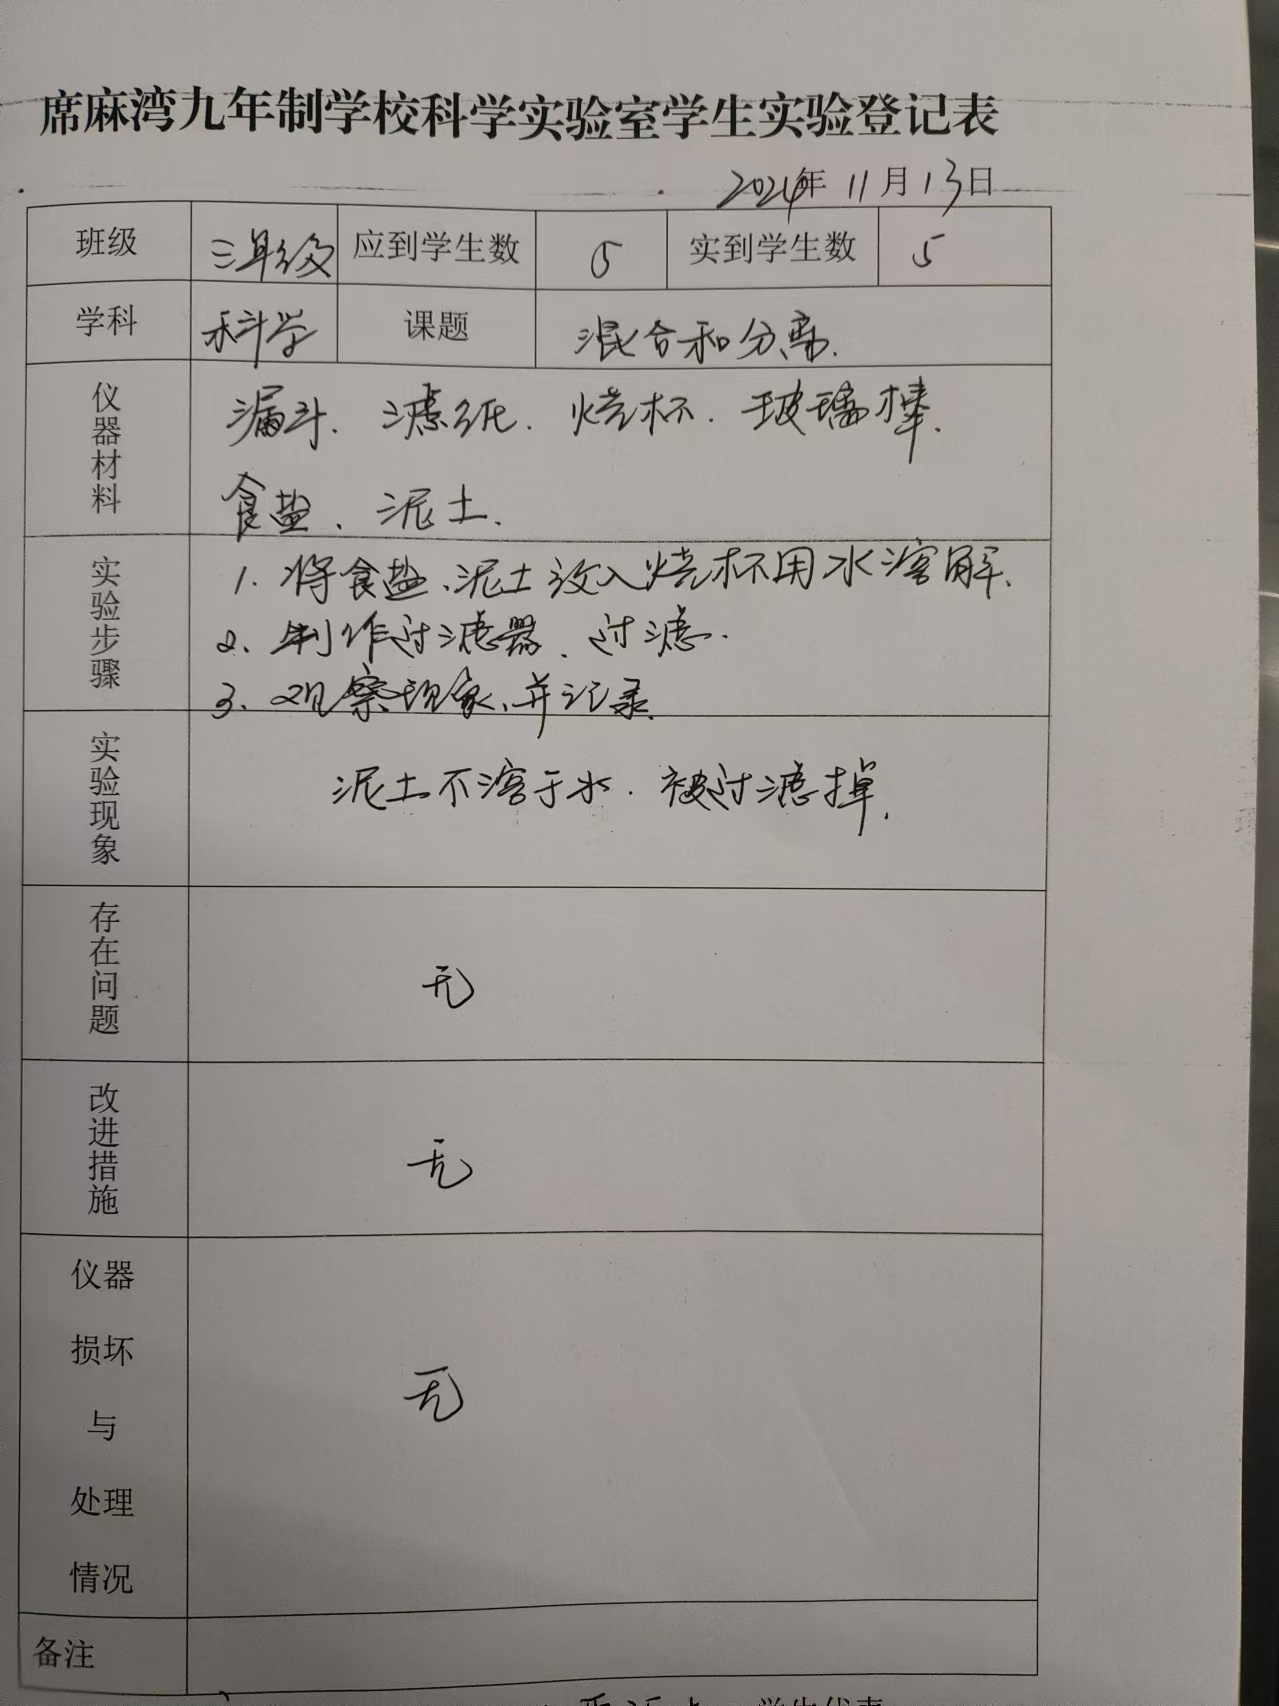 席麻湾九年制学校科学实验室学生实验登记表
2024年 11月13日
班级 三年级 应到学生数 5 实到学生数 5
学科 科学 课题 混合和分离.
仪器材料 漏斗. 滤纸. 烧杯. 玻璃棒.
食盐. 泥土.
实验步骤 1. 将食盐、泥土放入烧杯用水溶解.
2. 制作过滤器. 过滤.
3. 观察现象,并记录.
实验现象 泥土不溶于水. 被过滤掉.
存在问题 无
改进措施 无
仪器
损坏
与
处理
情况 无
备注
学生代表